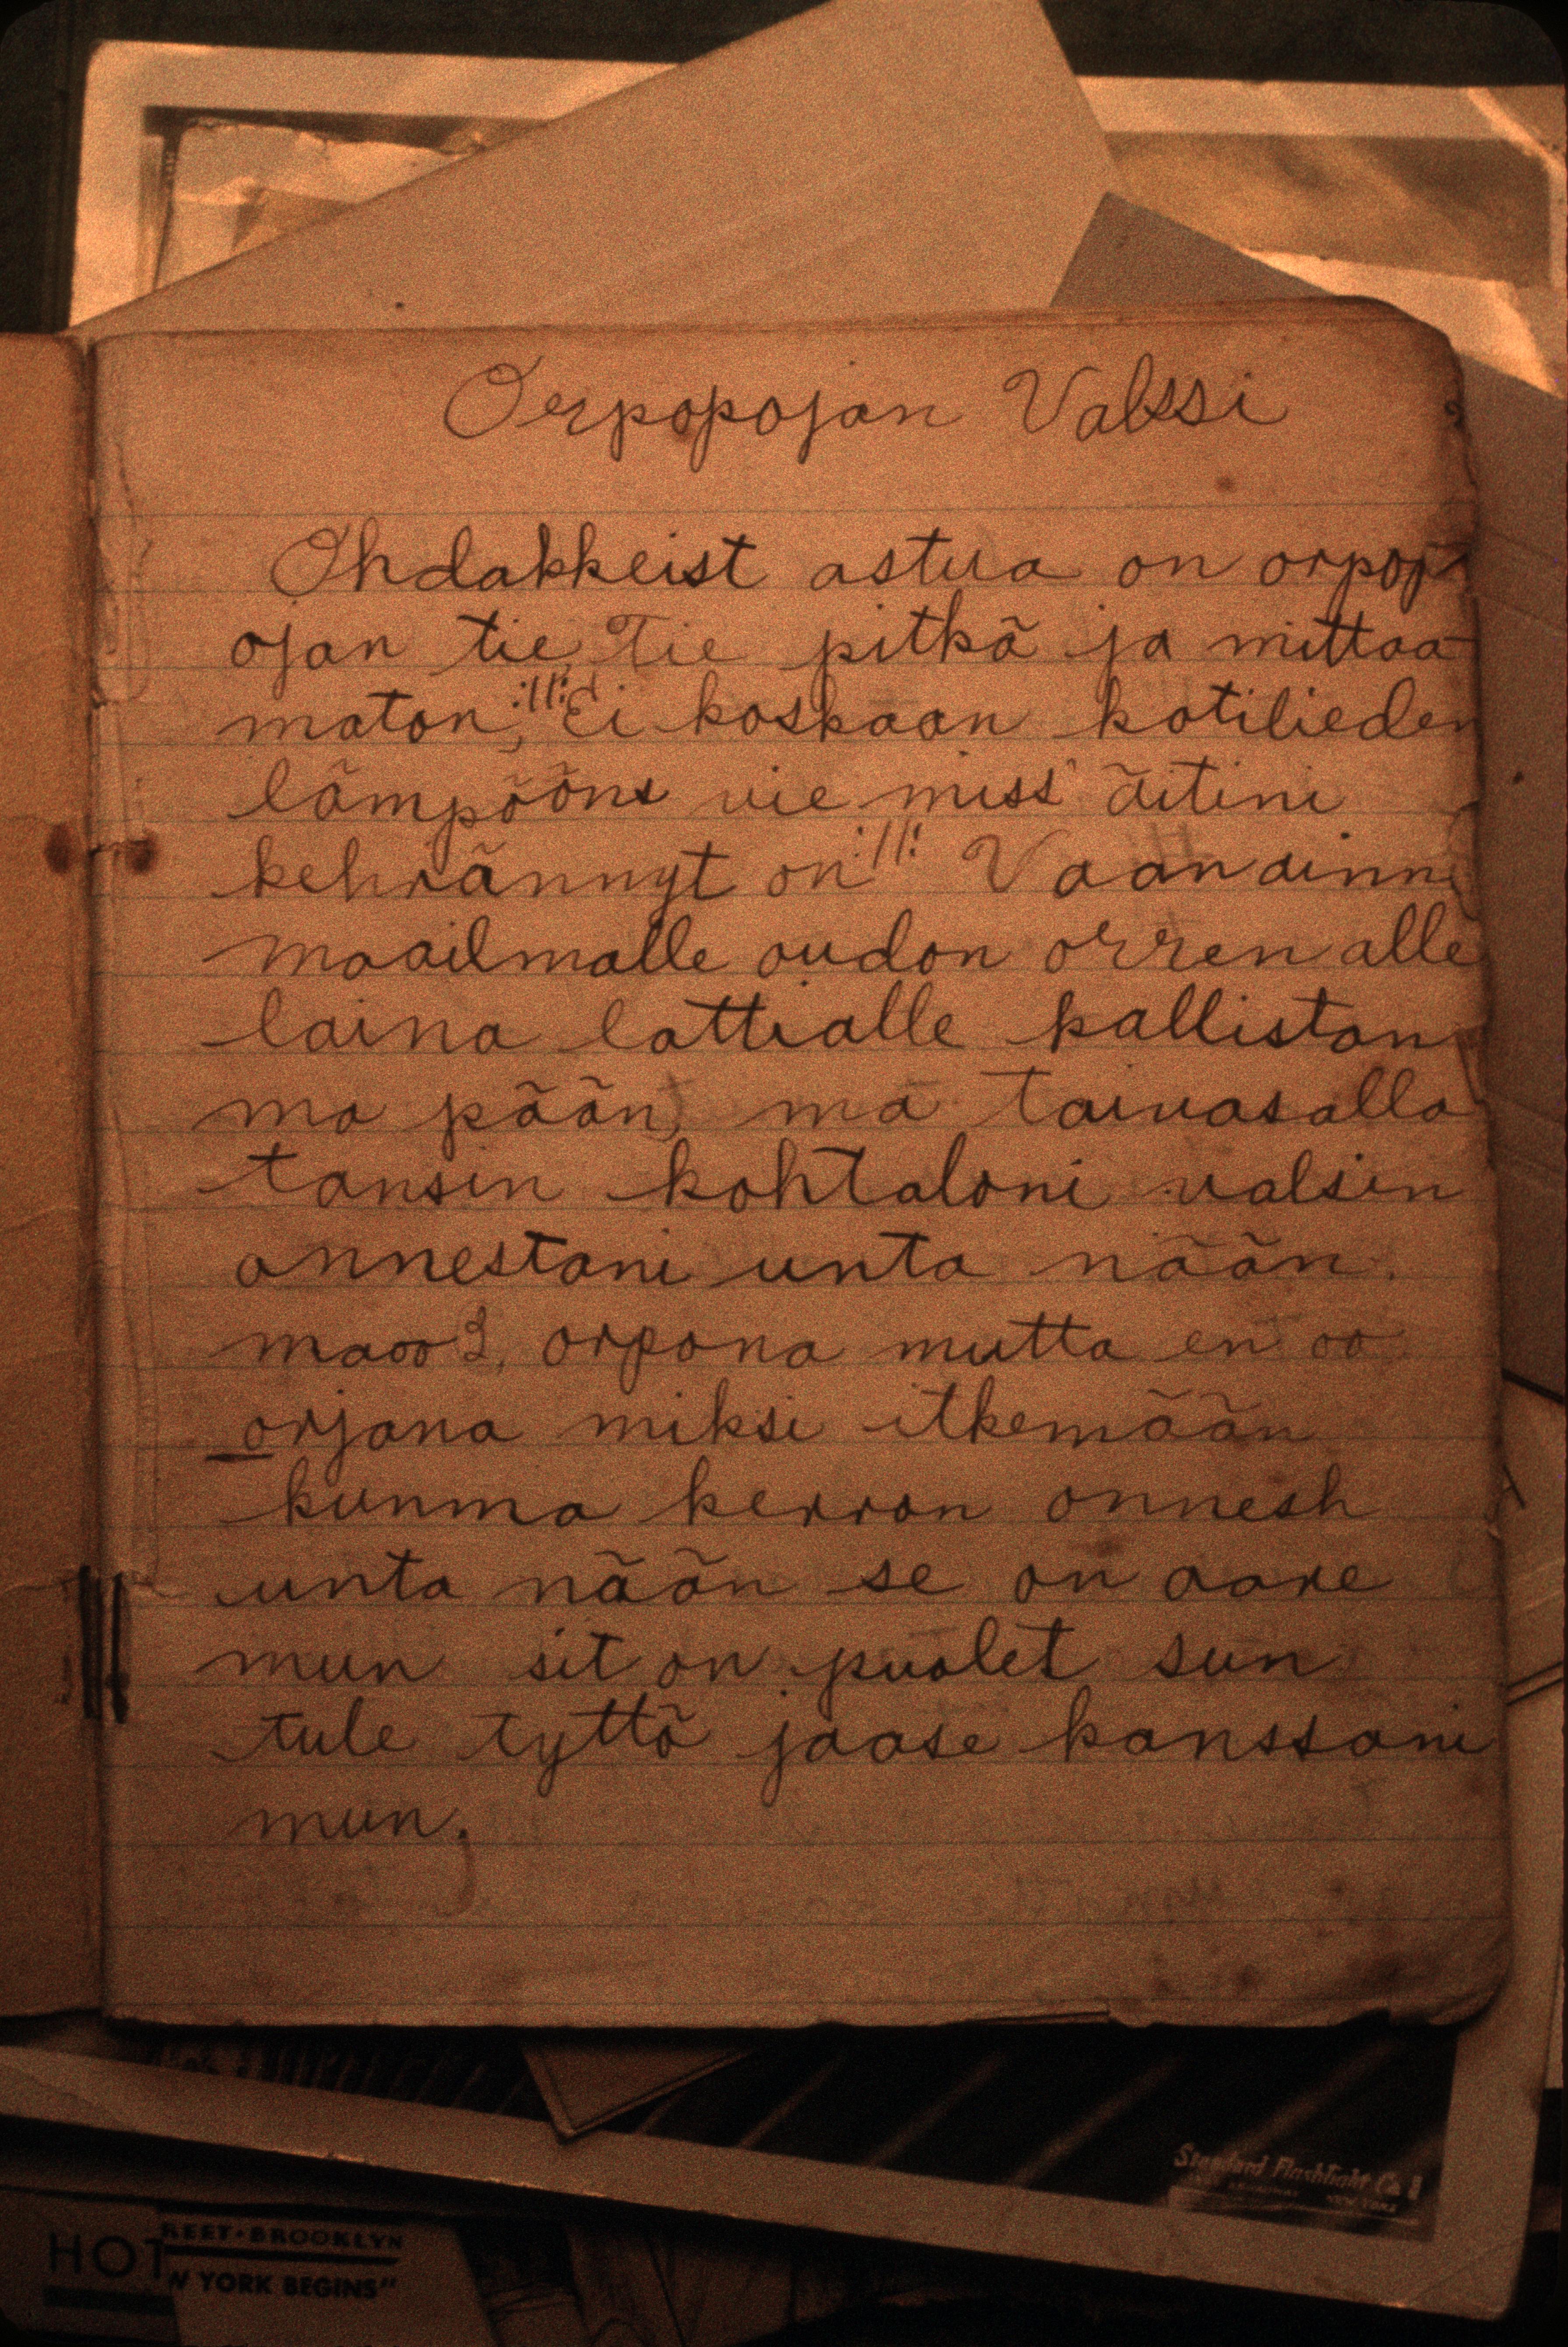 Orpopojan Valssi
Ohdakkeist astua on orpop-
ojan tie, Tie pitkä ja mittaa-
maton, :||: Ei koskaan kotilieden
lämpööns vie miss' äitini
kehrännyt on :||: Vaan ainn
maailmalle oudon orren alle
laina lattialle kallistan
ma pään, ma taivasalla
tansin kohtaloni valsin
onnestani unta nään.
ma oo orpona mutta en oo
orjana miksi itkemään
kunma kerran onnesh
unta nään se on aare
mun sit on puolet sun
tule tyttö jaase kanssani
mun.
Standard Flashlight Co
NEW YORK
HOT
REET·BROOKLYN
W YORK BEGINS"